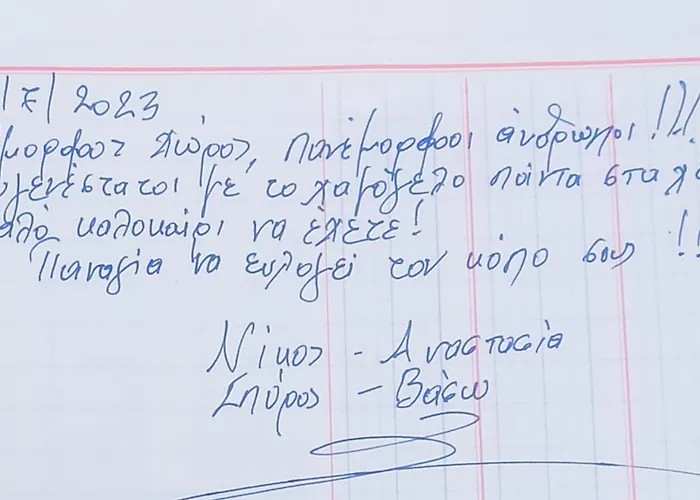 /7/2023
μορφος χώρος, πανέμορφοι άνθρωποι!!!
γενέστατοι με το χαμόγελο πάντα στα χ
αλό καλοκαίρι να έχετε!
Παναγία να ευλογεί τον κόπο σας!!
Νίκος - Αναστασία
Σπύρος - Βάσω